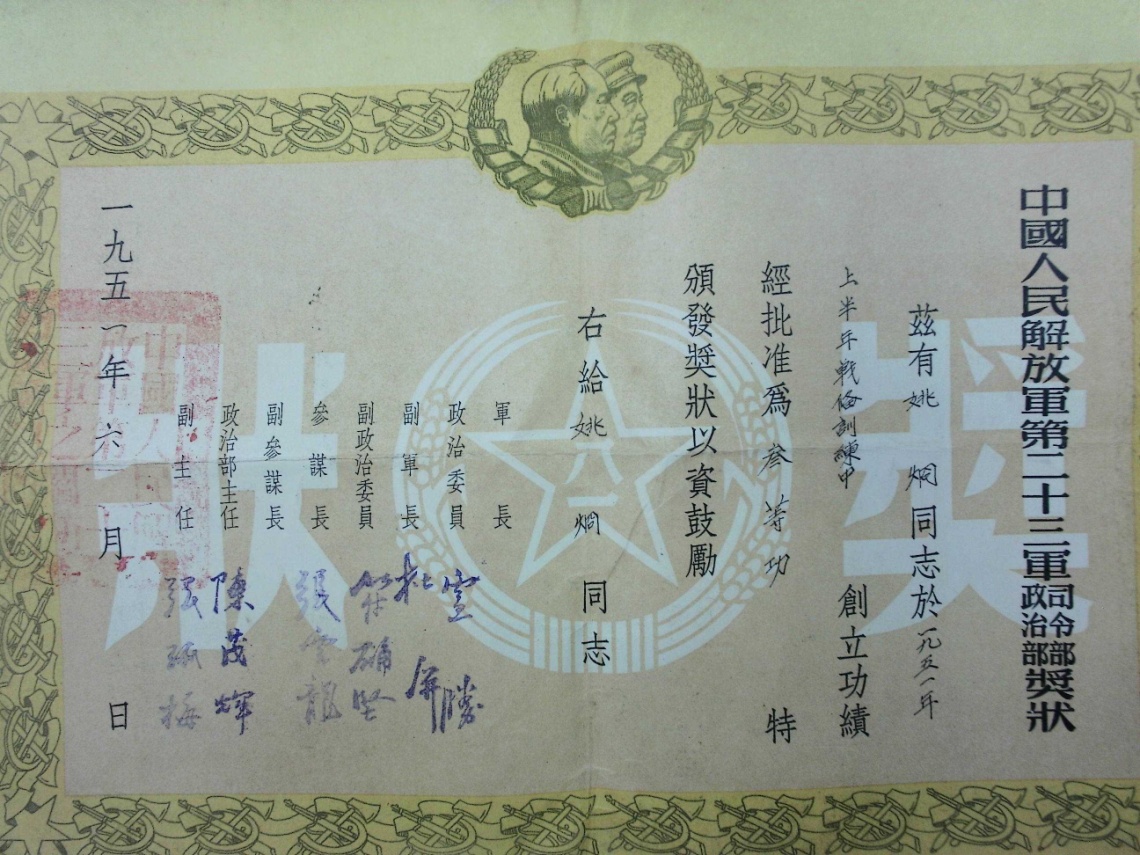 中國人民解放軍第二十三軍司令部政治部獎狀
茲有姚炯同志於一九五一年
上半年戰俗訓練中 創立功績
經批准爲叄等功 特
頒發獎狀以資鼓勵
右給姚炯同志
軍長
政治委員
副軍長
副政治委員
參謀長
副參謀長
政治部主任 陳茂輝
副主任
一九五一年六月 日
獎狀
八一